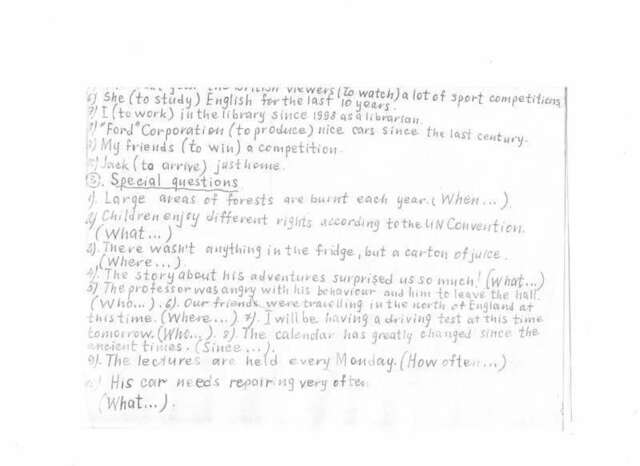 British viewers (to watch) a lot of sport competitions
6) She (to study) English for the last 10 years.
7) I (to work) in the library since 1998 as a librarian.
8) "Ford" Corporation (to produce) nice cars since the last century.
9) My friends (to win) a competition.
10) Jack (to arrive) just home.
3. Special questions
1). Large areas of forests are burnt each year. (When ... ).
2) Children enjoy different rights according to the UN Convention.
(What ... )
3). There wasn't anything in the fridge, but a carton of juice.
(Where ... )
4). The story about his adventures surprised us so much! (What...)
5) The professor was angry with his behaviour and him to leave the hall.
(Who... ). 6). Our friends were travelling in the north of England at
this time. (Where ... ) 7). I will be having a driving test at this time
tomorrow. (Who... ). 8). The calendar has greatly changed since the
ancient times. (Since ... ).
9). The lectures are held every Monday. (How often ... )
His car needs repairing very often
(What... ).